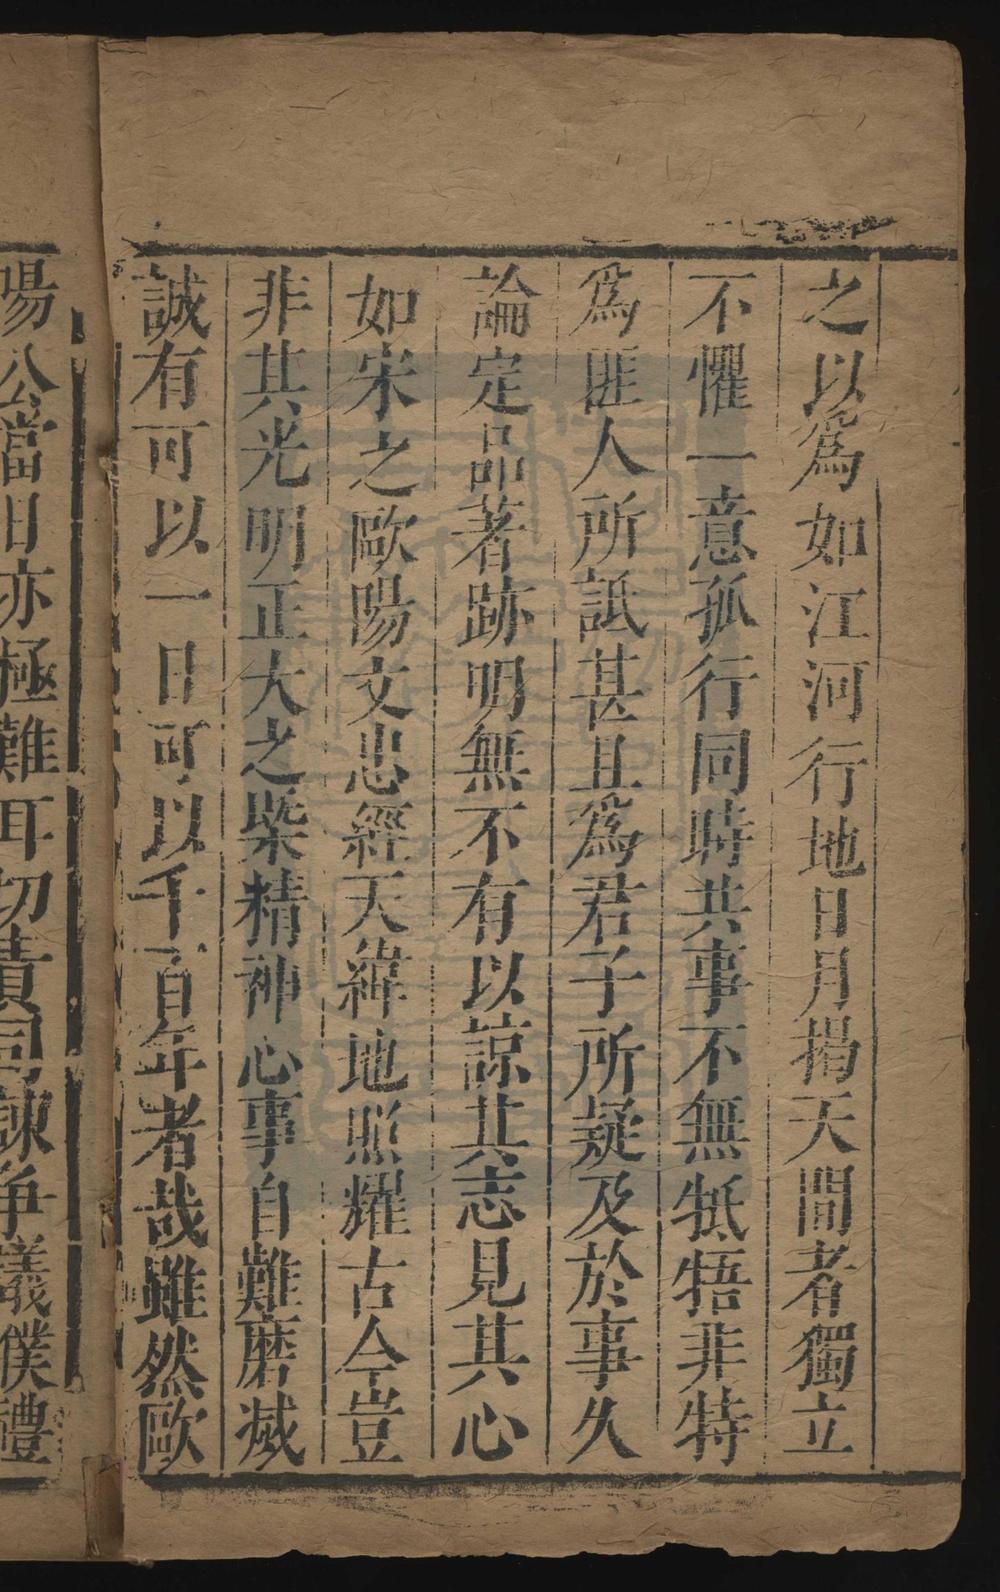 之以爲如江河行地日月揭天間者獨立
不懼一意孤行同時共事不無牴牾非特
爲匪人所詆甚且爲君子所疑及於事久
論定品著跡明無不有以諒其志見其心
如宋之歐陽文忠經天緯地照耀古今豈
非其光明正大之槩精神心事自難磨滅
誠有可以一日可以千百年者哉雖然歐
陽公當日亦極難耳切責司諫爭議濮禮